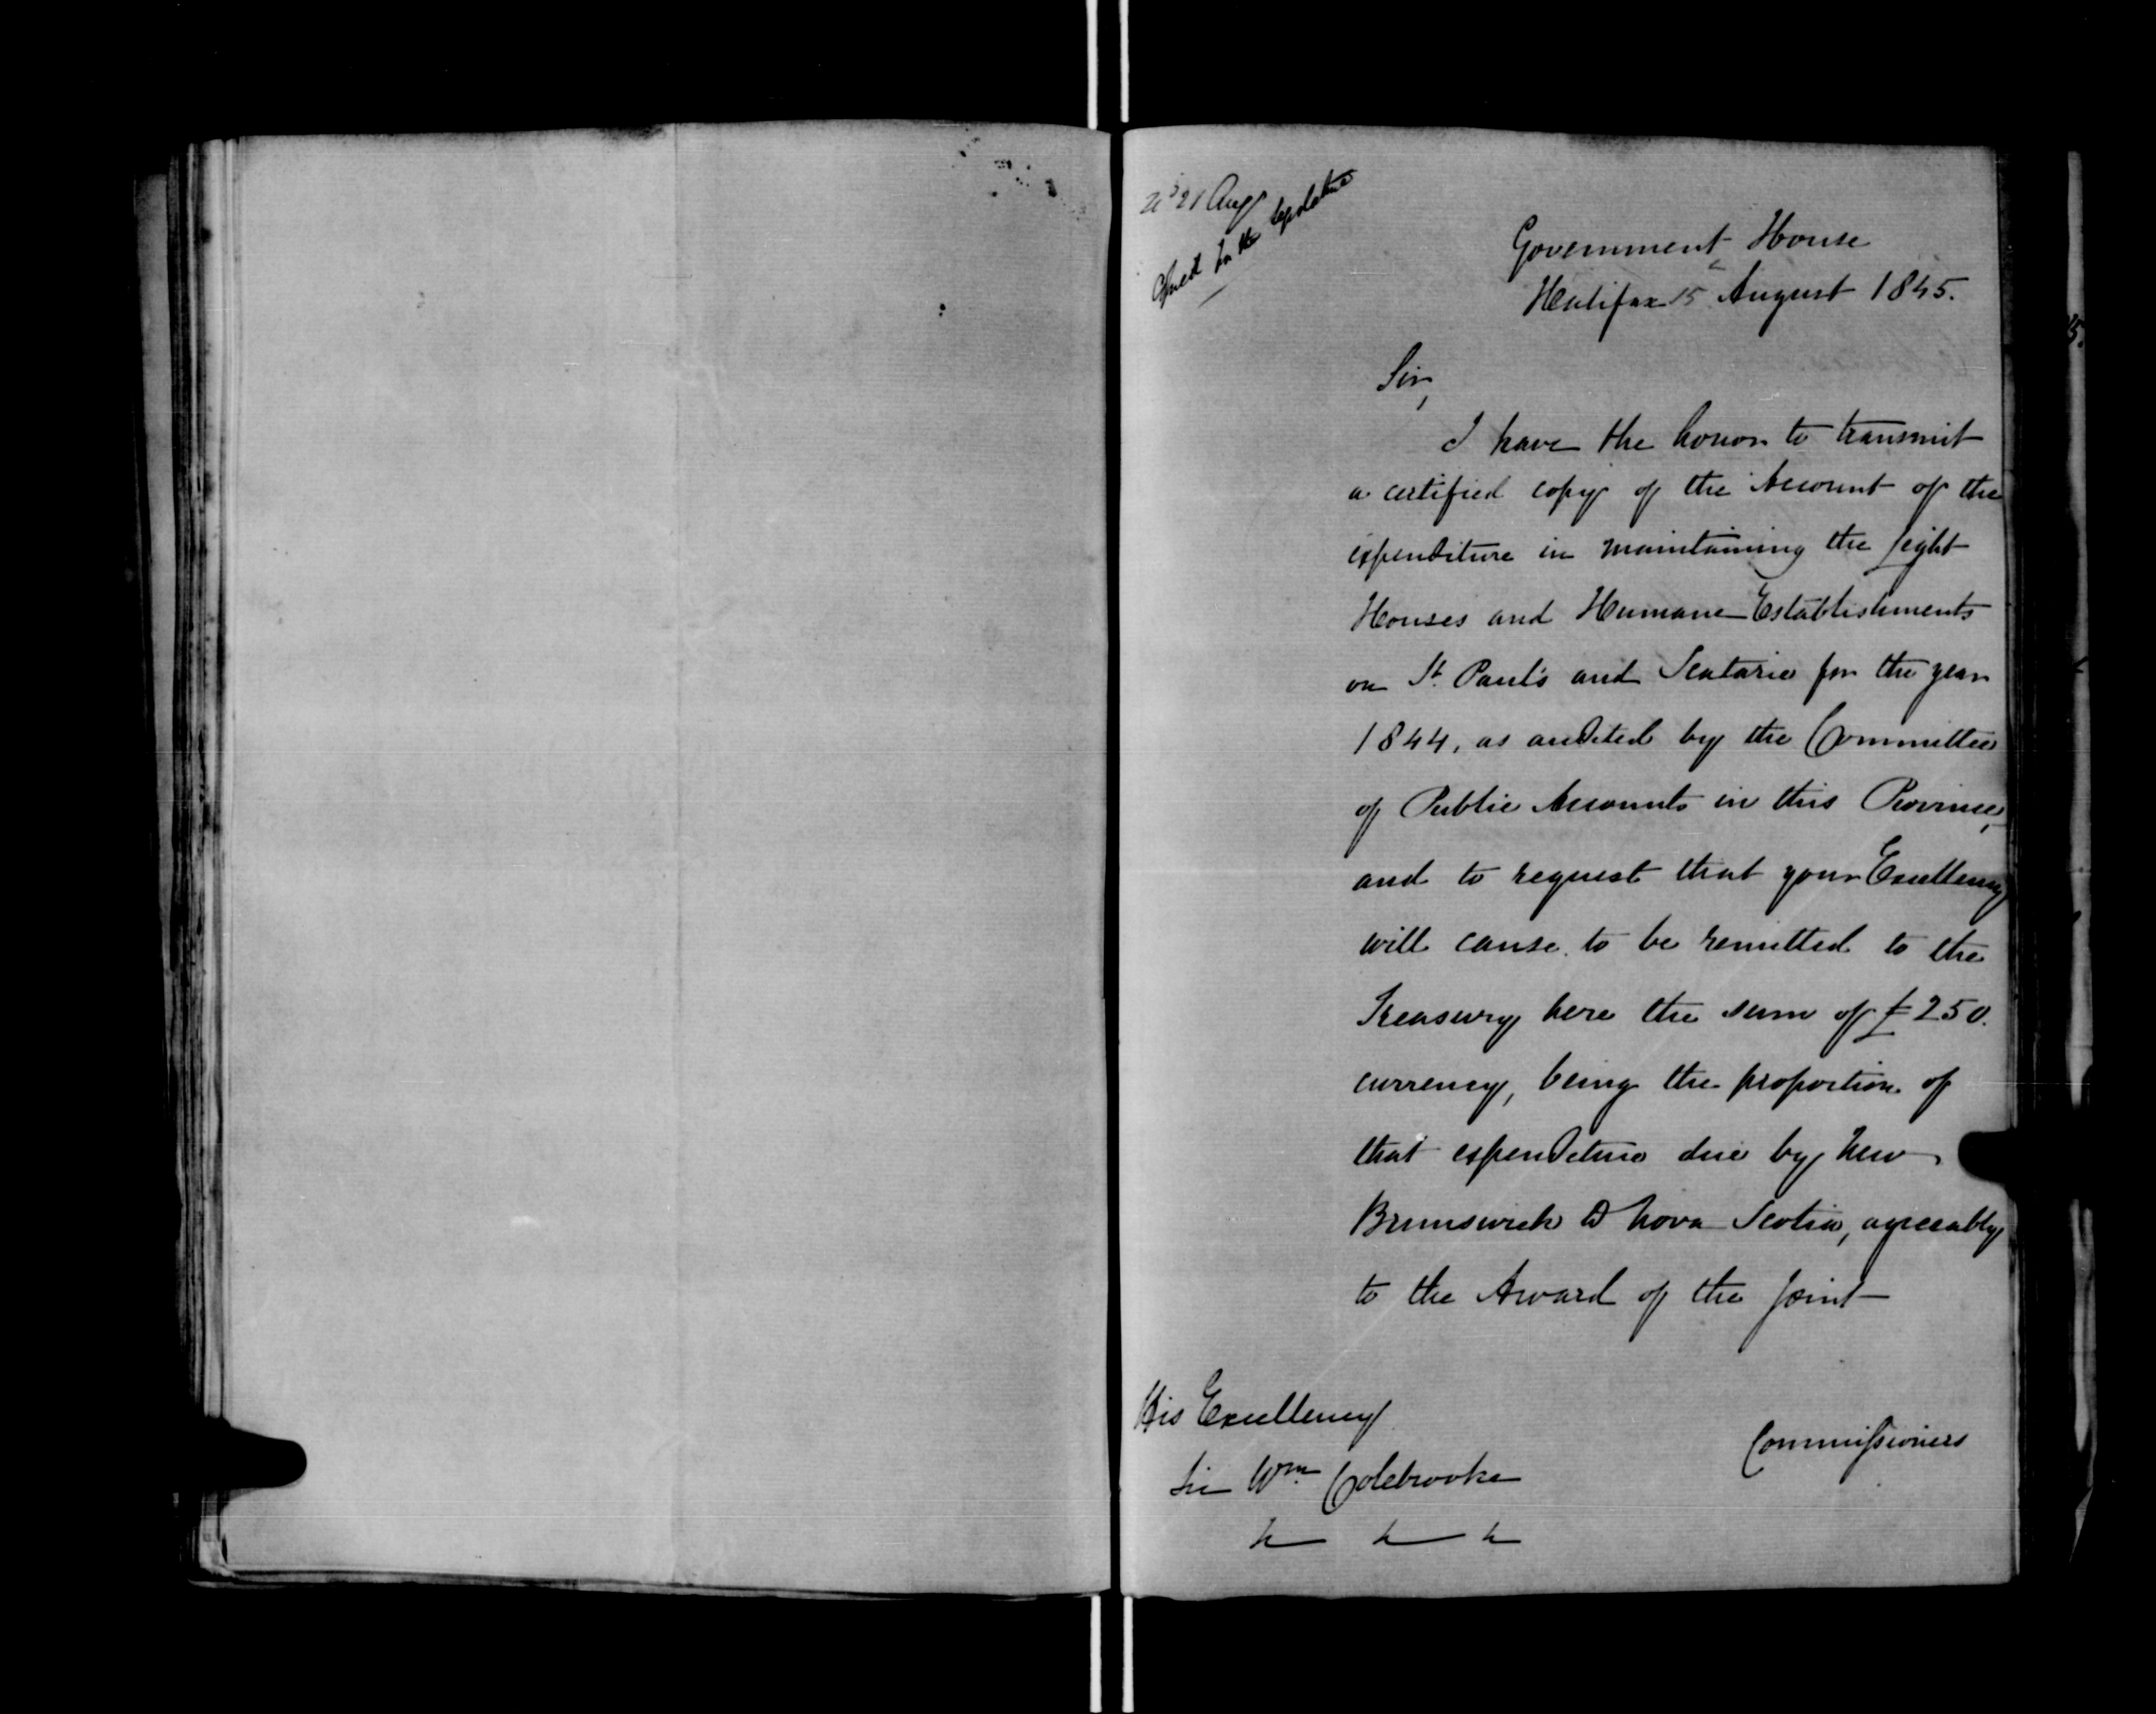 21 Aug
Government House
Halifax 15 August 1845.
Sir,
I have the honor to transmit
a certified copy of the Account of the
expenditure in maintaining the Light
Houses and Humane Establishments
on St. Paul's and Scatarie for the year
1844, as audited by the Committee
of Public Accounts in this Province,
and to request that your Excellency
will cause to be remitted to the
Treasury here the sum of £250.
currency, being the proportion of
that expenditure due by New
Brunswick to Nova Scotia, agreeably
to the Award of the Joint
Commissioners
His Excellency
Sir Wm. Colebrooke